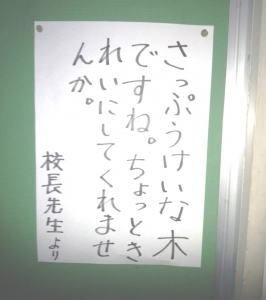 さっぷうけいな木
ですね。ちょっとき
れいにしてくれませ
んか。
校長先生より